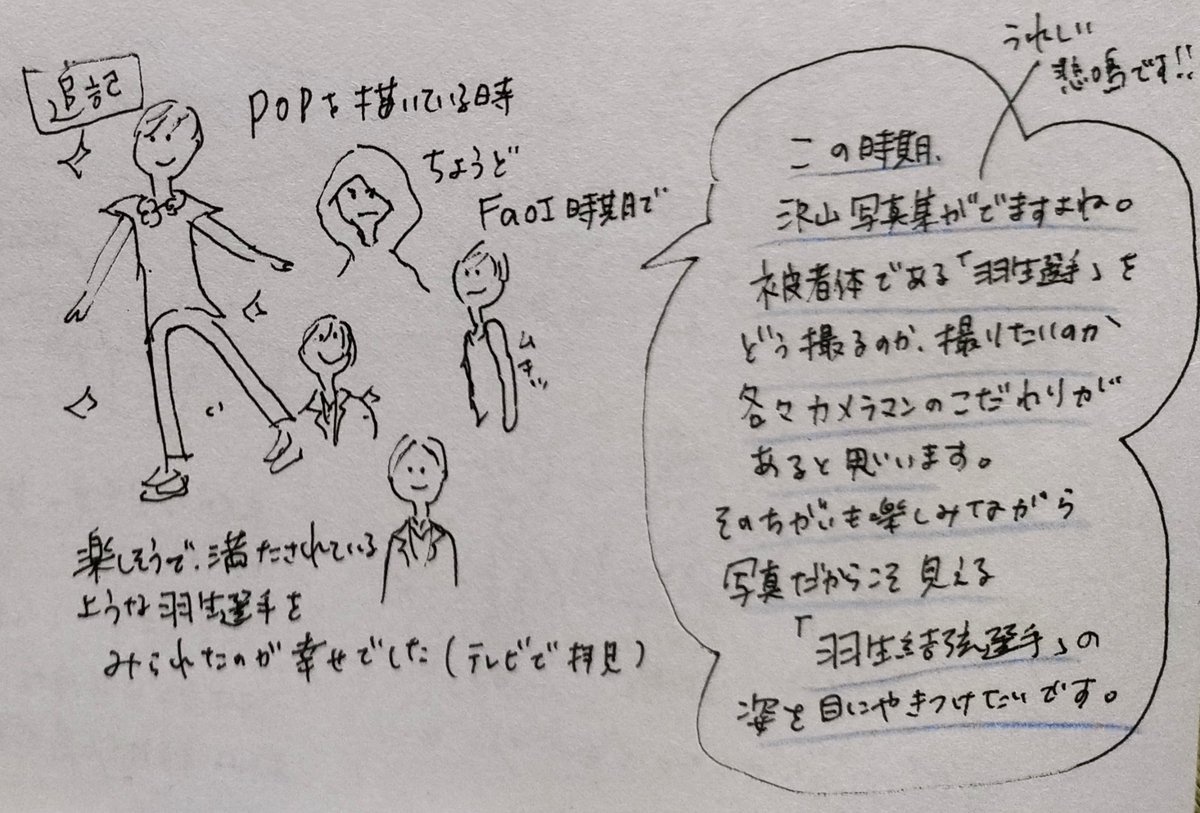 追記
POPを描いている時
ちょうど
FaoI時期で
ムキッ
楽しそうで、満たされている
ような羽生選手を
みられたのが幸せでした(テレビで拝見)
うれしい
悲鳴です!!
この時期、
沢山写真集がでますよね。
被者体である「羽生選手」を
どう撮るのか、撮りたいのか
各々カメラマンのこだわりが
あると思います。
そのちがいも楽しみながら
写真だからこそ見える
「羽生結弦選手」の
姿を目にやきつけたいです。